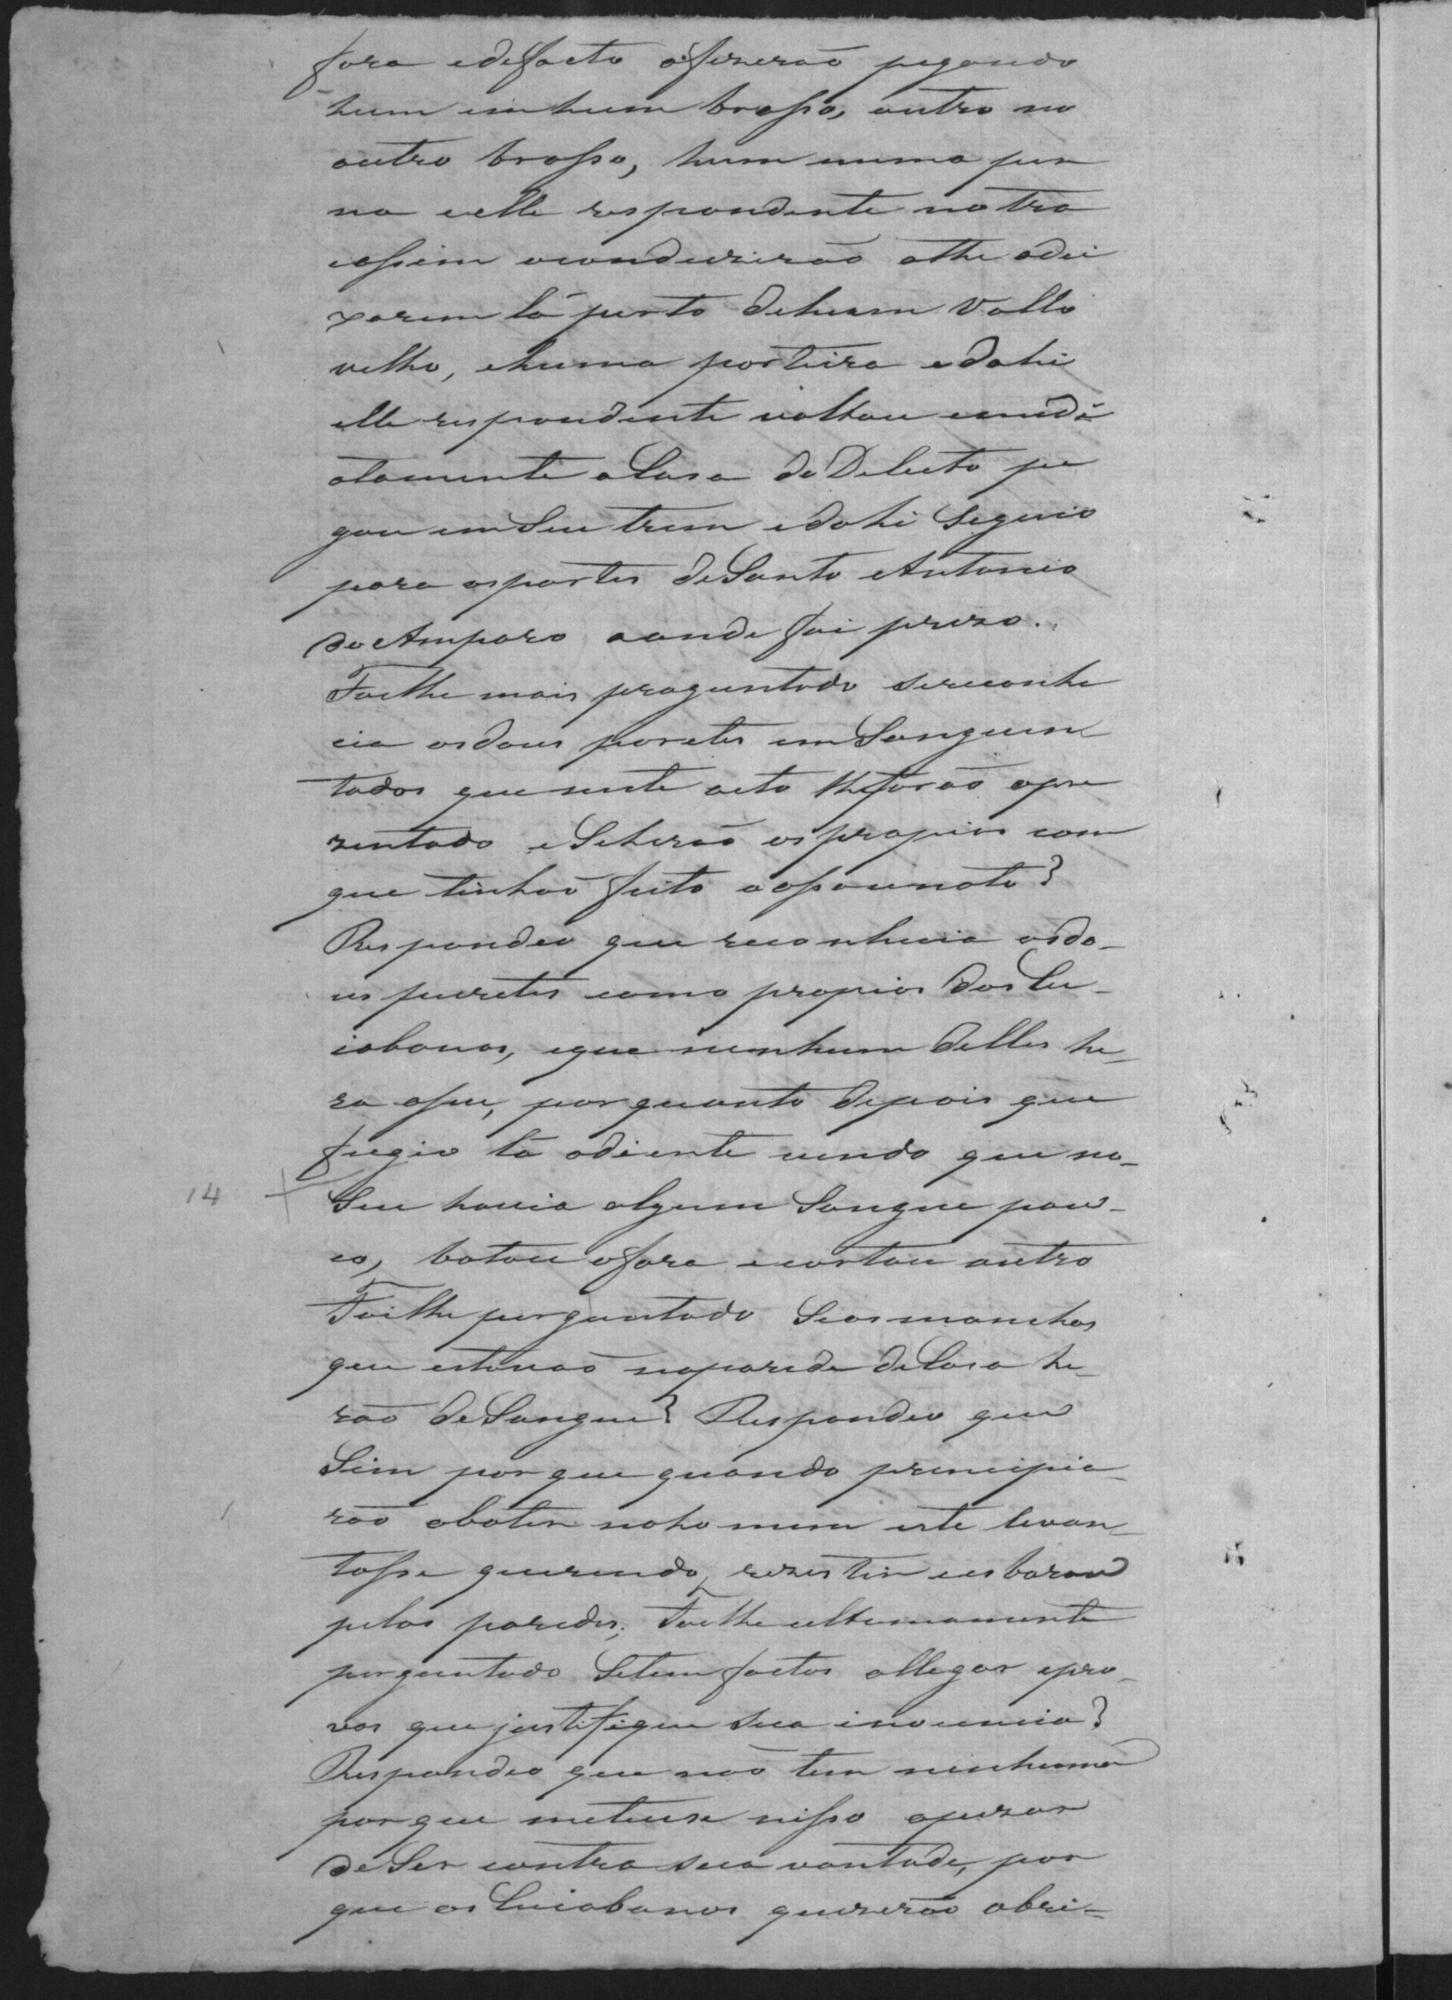 fora edefacto ofizerão pegando
hum em hum brasso, outro no
outro brasso, hum numa per
na eelle respondente notra
eassim oconduzirão athe odei
xarem lá perto dehum Vallo
velho, ehuma porteira edahi
elle respondente voltou emidi
atamente aCasa do Delecto pe
gou emSeu trem edahi Seguio
para aspartes deSanto Antonio
do Amparo aonde foi prezo.
Foilhe mais preguntado sereconhe
cia osdous poretes emSanguen
tados que neste acto lheforão apre
zentado eSeherão os propios com
que tinhão feito oassacinato?
Respondeo que reconhecia osdo-
us puretes como propios dosCu-
iabanos, eque nenhum delles he-
ra oseu, porquanto depois que
fugio lá adiente vendo que no-
Seu havia algum Sangue pou-
co, botou ofora ecortou outro
Foilhe perguntado Seasmanchas
que estavão naparede deCasa he-
rão deSangue? Respondeo que
Sim por que quando principia-
rão abater nohomem este levan-
tosse querendo rezestir eesbarou
pelas paredes; Foilhe ultimamente
perguntado Setem factos allegar epro-
vas que justifique sua inocencia?
Respondeo que não tem nenhuma
porque meteuse nisso apezar
deSer contra sua vontade, por
que os Cuiabanos quizerão obri-
14